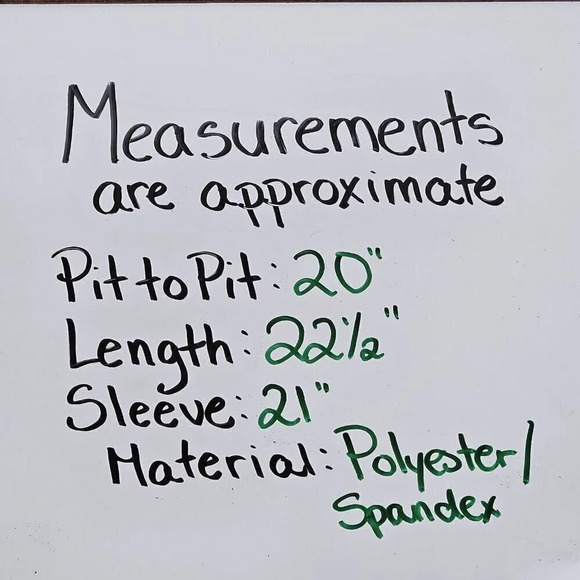 Measurements
are approximate
Pit to Pit: 20"
Length: 22½"
Sleeve: 21"
Material: Polyester/
Spandex